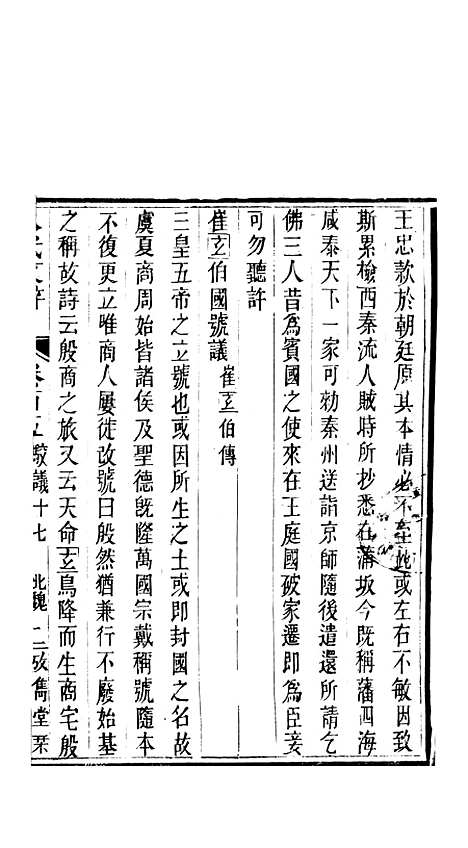 王忠款於朝廷原其本情必不至此或左右不敏因致
斯累檢西秦流人賊時所抄悉在蒲坂今既稱藩四海
咸泰天下一家可勑秦州送詣京師隨後遣還所請乞
佛三人昔爲賓國之使來在王庭國破家遷即爲臣妾
可勿聽許
崔玄伯國號議 崔玄伯傳
三皇五帝之立號也或因所生之土或即封國之名故
虞夏商周始皆諸侯及聖德旣隆萬國宗戴稱號隨本
不復更立唯商人屢徙改號曰殷然猶兼行不廢始基
之稱故詩云殷商之旅又云天命玄鳥降而生商宅殷
卷百五 駮議十七 北魏 二 攷雋堂栞